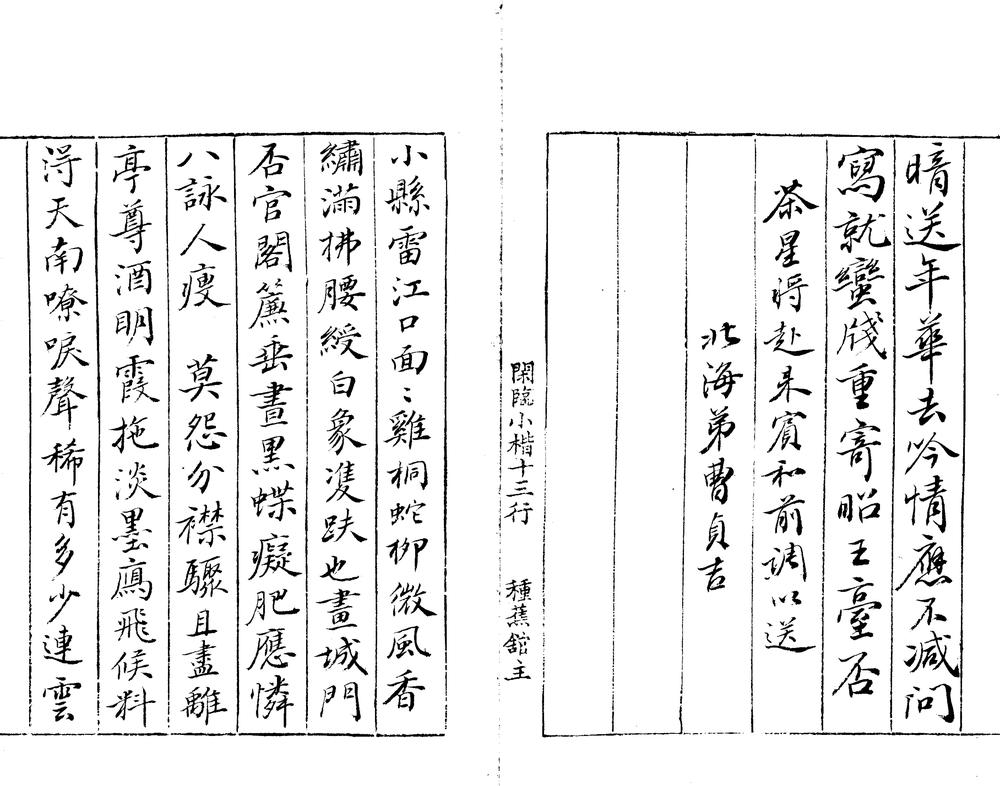 暗送年華去吟情應不减问
寫就蠻牋重寄昭王臺否
茶星将赴来賓和前調以送
北海弟曹貞吉
閑臨小楷十三行 種蕉館主
小縣雷江口面〻雞桐蛇柳微風香
繡滿拂腰綬白象凌趺也畫城門
否官閣簾垂晝黑蝶癡肥應憐
八詠人瘦 莫怨分襟驟且盡離
亭尊酒明霞拖淡墨鴈飛候料
得天南嘹唳聲稀有多少連雲